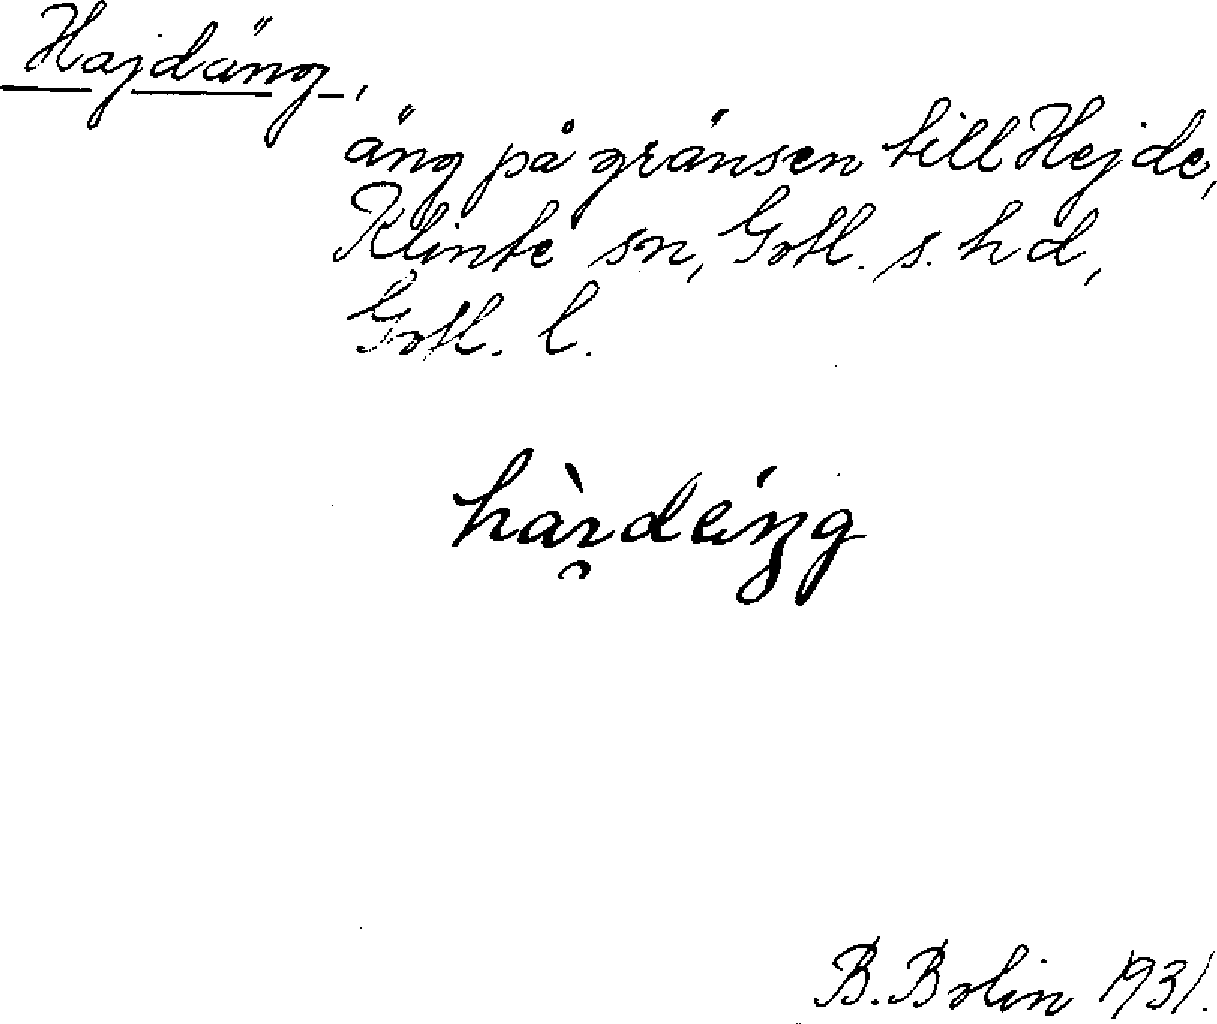 Hajdäng,
äng på gränsen till Hejde,
Klinte sn, Gotl. s. hd,
Gotl. l.
B. Bolin 1931.